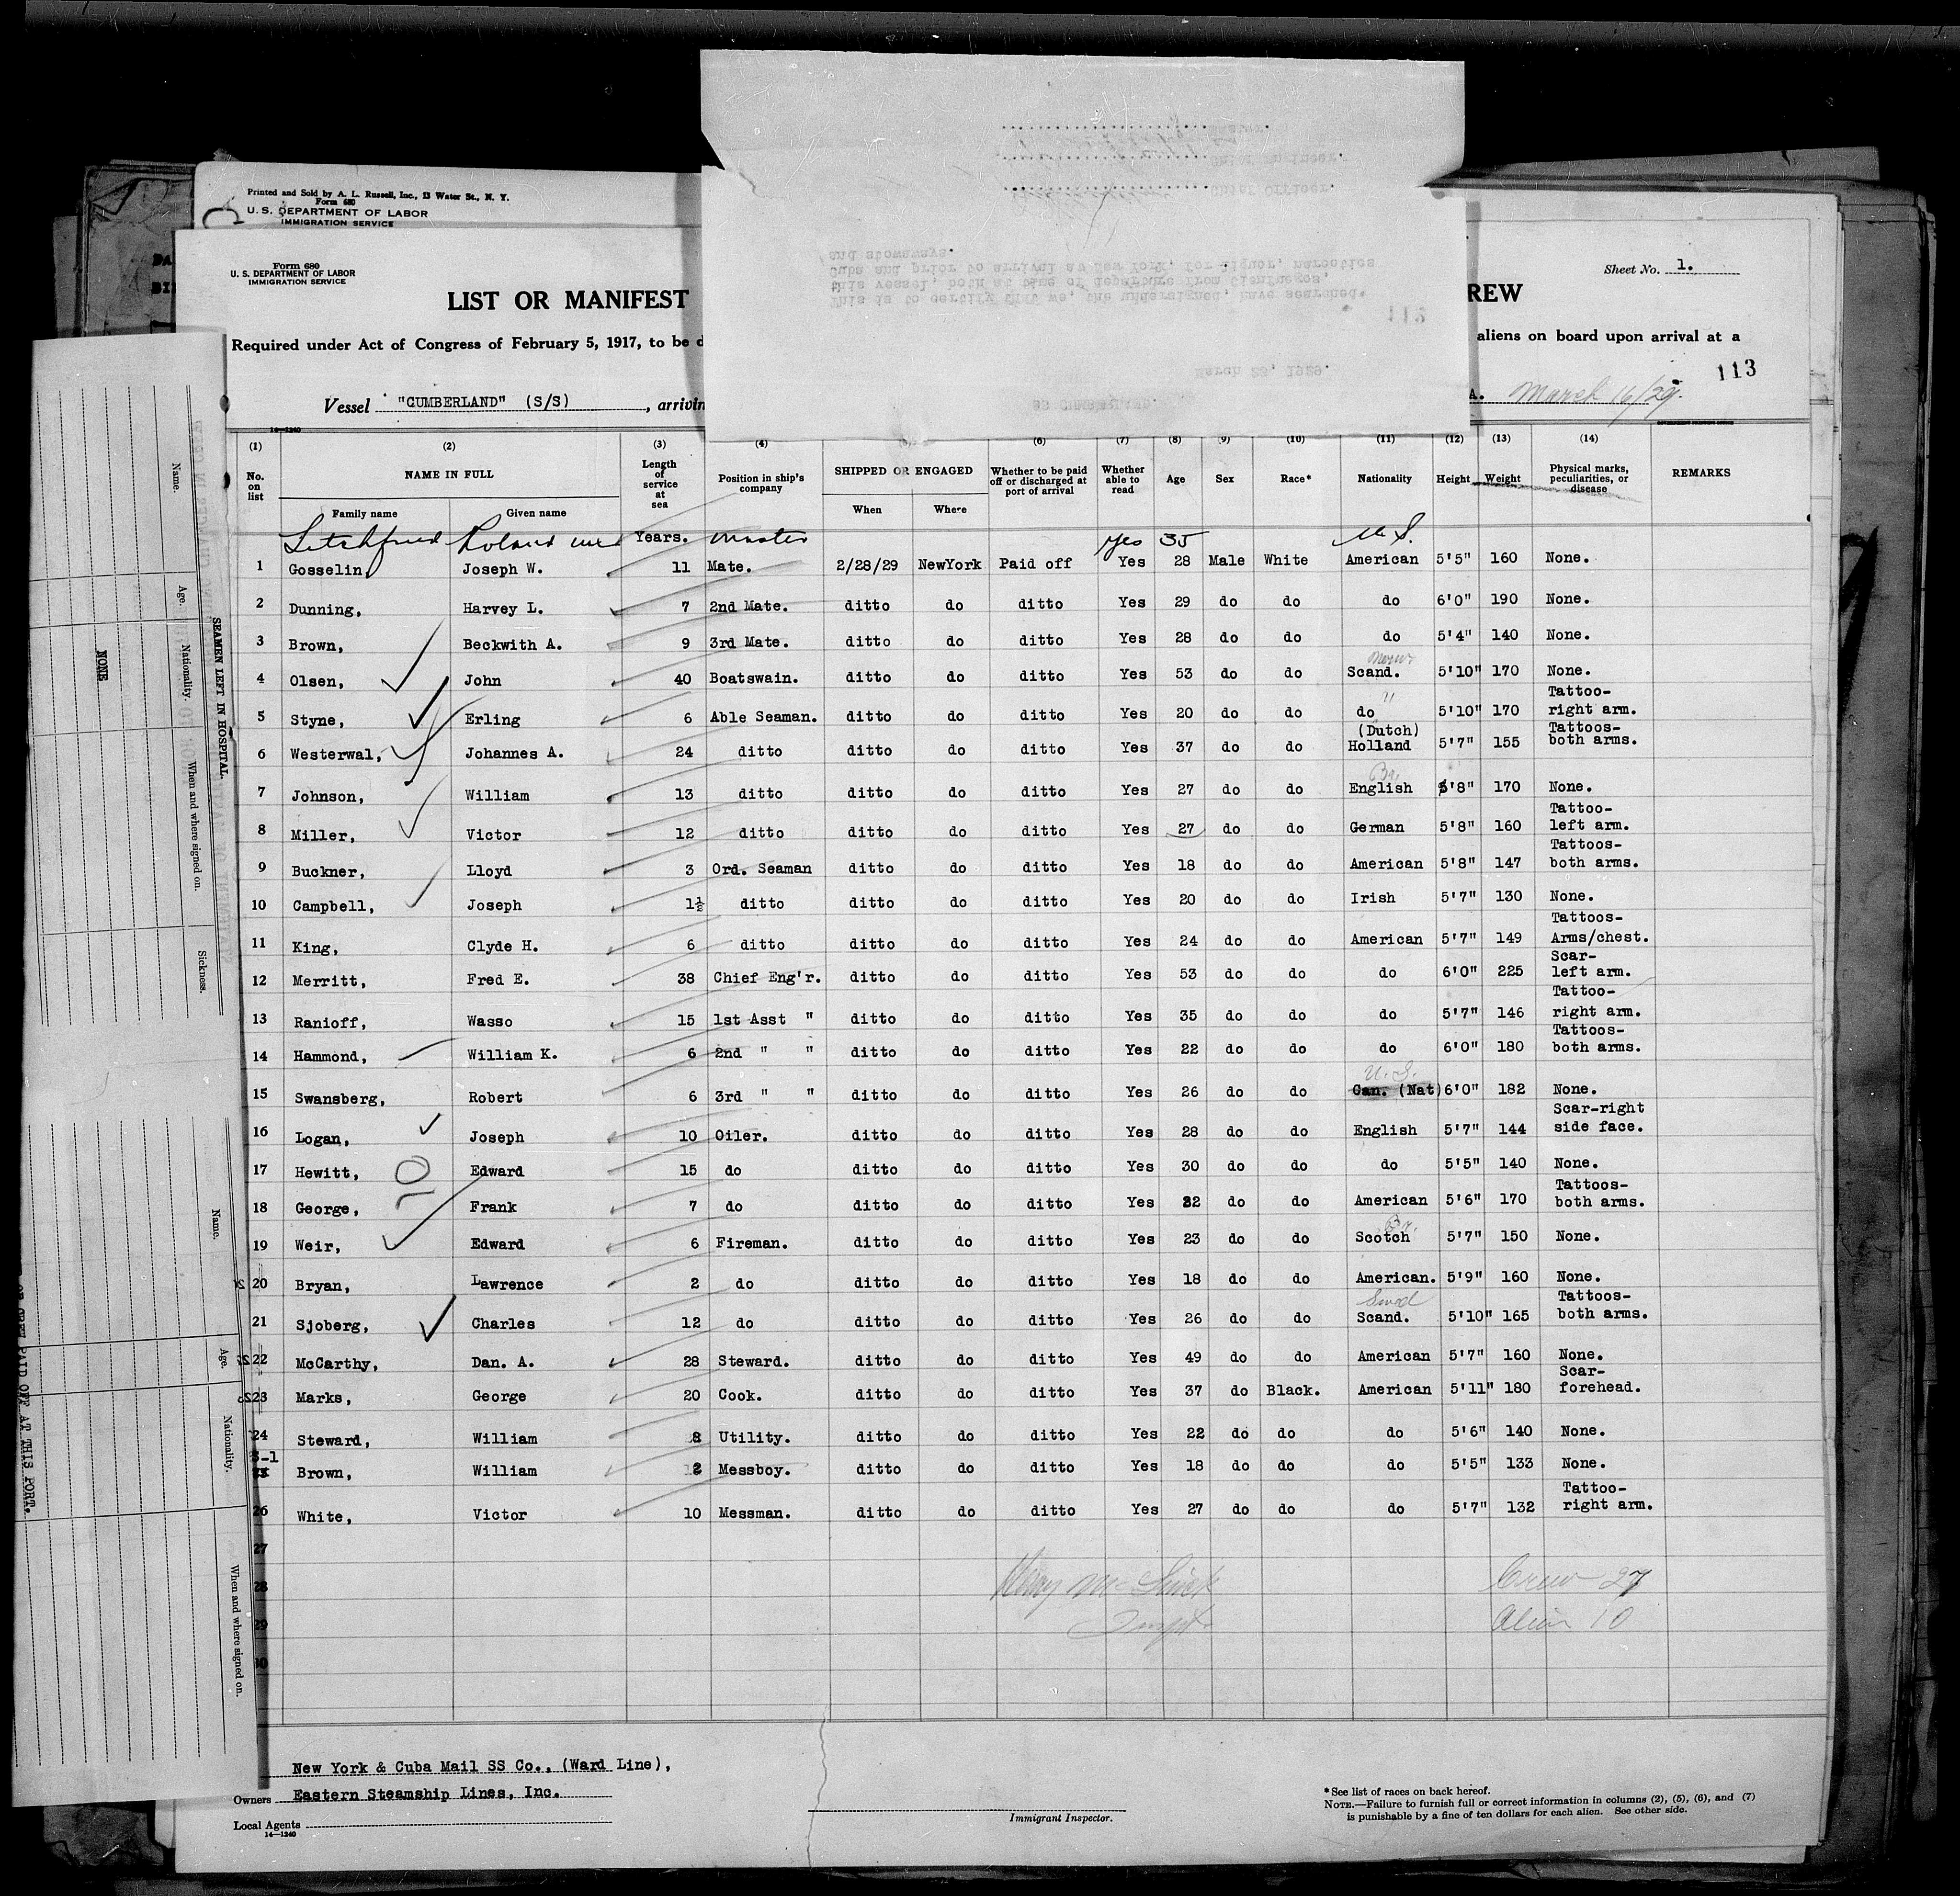 Printed and Sold by A. L. Russell, Inc., 13 Water St., N. Y.
Form 680
U. S. DEPARTMENT OF LABOR
IMMIGRATION SERVICE
Form 680
U. S. DEPARTMENT OF LABOR
IMMIGRATION SERVICE
Sheet No. 1.
LIST OR MANIFEST
REW
Required under Act of Congress of February 5, 1917, to be d
aliens on board upon arrival at a
113
Vessel "CUMBERLAND" (S/S), arrivin
A. March 16/29.
SS CUMBERLAND.
March 23, 1929.
113
This is to certify that we, the undersigned, have searched.
this vessel, both at time of departure from Cienfuegos,
Cuba and prior to arrival at New York, for liquor, narcotics
and stowaways.
Chief Officer.
Chief Engineer.
14-1240
(1) (2) (3) (4) (6) (7) (8) (9) (10) (11) (12) (13) (14)
No. on list NAME IN FULL Length of service at sea Position in ship's company SHIPPED OR ENGAGED Whether to be paid off or discharged at port of arrival Whether able to read Age Sex Race* Nationality Height Weight Physical marks, peculiarities, or disease REMARKS
Family name Given name When Where
Roland Years. Master Yes 35 U.S.
1 Gosselin, Joseph W. 11 Mate. 2/28/29 NewYork Paid off Yes 28 Male White American 5'5" 160 None.
2 Dunning, Harvey L. 7 2nd Mate. ditto do ditto Yes 29 do do do 6'0" 190 None.
3 Brown, Beckwith A. 9 3rd Mate. ditto do ditto Yes 28 do do do 5'4" 140 None.
4 Olsen, John 40 Boatswain. ditto do ditto Yes 53 do do Scand. 5'10" 170 None.
5 Styne, Erling 6 Able Seaman. ditto do ditto Yes 20 do do do 5'10" 170 Tattoo- right arm.
6 Westerwal, Johannes A. 24 ditto ditto do ditto Yes 37 do do (Dutch) Holland 5'7" 155 Tattoos- both arms.
7 Johnson, William 13 ditto ditto do ditto Yes 27 do do Br. English 5'8" 170 None.
8 Miller, Victor 12 ditto ditto do ditto Yes 27 do do German 5'8" 160 Tattoo- left arm.
9 Buckner, Lloyd 3 Ord. Seaman ditto do ditto Yes 18 do do American 5'8" 147 Tattoos- both arms.
10 Campbell, Joseph 1½ ditto ditto do ditto Yes 20 do do Irish 5'7" 130 None.
11 King, Clyde H. 6 ditto ditto do ditto Yes 24 do do American 5'7" 149 Tattoos- Arms/chest.
12 Merritt, Fred E. 38 Chief Eng'r. ditto do ditto Yes 53 do do do 6'0" 225 Scar- left arm.
13 Ranioff, Wasso 15 1st Asst " ditto do ditto Yes 35 do do do 5'7" 146 Tattoo- right arm.
14 Hammond, William K. 6 2nd " " ditto do ditto Yes 22 do do do 6'0" 180 Tattoos- both arms.
15 Swansberg, Robert 6 3rd " " ditto do ditto Yes 26 do do U.S. Can. (Nat) 6'0" 182 None.
16 Logan, Joseph 10 Oiler. ditto do ditto Yes 28 do do English 5'7" 144 Scar-right side face.
17 Hewitt, Edward 15 do ditto do ditto Yes 30 do do do 5'5" 140 None.
18 George, Frank 7 do ditto do ditto Yes 32 do do American 5'6" 170 Tattoos- both arms.
19 Weir, Edward 6 Fireman. ditto do ditto Yes 23 do do Br. Scotch 5'7" 150 None.
20 Bryan, Lawrence 2 do ditto do ditto Yes 18 do do American. 5'9" 160 None.
21 Sjoberg, Charles 12 do ditto do ditto Yes 26 do do Swed Scand. 5'10" 165 Tattoos- both arms.
22 McCarthy, Dan. A. 28 Steward. ditto do ditto Yes 49 do do American 5'7" 160 None.
23 Marks, George 20 Cook. ditto do ditto Yes 37 do Black. American 5'11" 180 Scar- forehead.
24 Steward, William 8 Utility. ditto do ditto Yes 22 do do do 5'6" 140 None.
Brown, William 2 Messboy. ditto do ditto Yes 18 do do do 5'5" 133 None.
26 White, Victor 10 Messman. ditto do ditto Yes 27 do do do 5'7" 132 Tattoo- right arm.
27
28
29
30
Crew 27
Alien 10
New York & Cuba Mail SS Co., (Ward Line),
Owners Eastern Steamship Lines, Inc.
Local Agents
14-1240
Immigrant Inspector.
*See list of races on back hereof.
NOTE.—Failure to furnish full or correct information in columns (2), (5), (6), and (7)
is punishable by a fine of ten dollars for each alien. See other side.
SEAMEN LEFT IN HOSPITAL.
Name. Age. Nationality. When and where signed on. Sickness.
NONE
PAID OFF AT THIS PORT.
Name. Age. Nationality. When and where signed on.